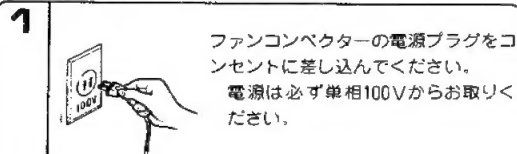 1
ファンコンベクターの電源プラグをコ
ンセントに差し込んでください。
電源は必ず単相100Vからお取りく
ださい。
100V